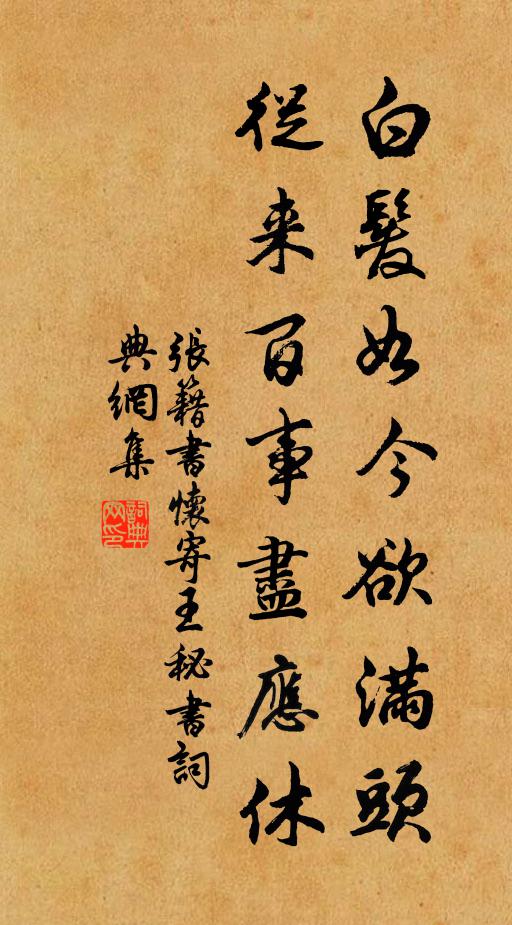 白髮如今欲滿頭
從来百事盡應休
張籍書懷寄王秘書詞
典網集
詞典網印